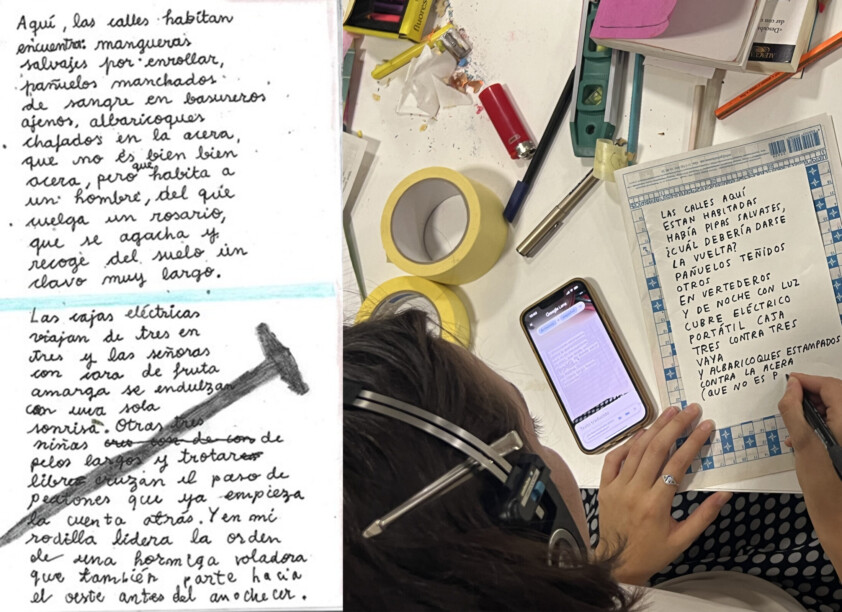 Aquí, las calles habitan
encuentra mangueras
salvajes por enrollar,
pañuelos manchados
de sangre en basureros
ajenos, albaricoques
chafados en la acera,
que no és bien bien
acera, pero que habita a
un hombre, del que
cuelga un rosario,
que se agacha y
recoge del suelo un
clavo muy largo.
Las cajas eléctricas
viajan de tres en
tres y las señoras
con cara de fruta
amarga se endulzan
con una sola
sonrisa. Otras tres
niñas de
pelos largos y trotar
libre cruzan el paso de
peatones que ya empieza
la cuenta atrás. Y en mi
rodilla lidera la orden
de una hormiga voladora
que también parte hacia
el oeste antes del anochecer.
LAS CALLES AQUÍ
ESTAN HABITADAS
HABÍA PIPAS SALVAJES,
¿CUÁL DEBERÍA DARSE
LA VUELTA?
PAÑUELOS TEÑIDOS
OTROS
EN VERTEDEROS
Y DE NOCHE CON LUZ
CUBRE ELÉCTRICO
PORTÁTIL CAJA
TRES CONTRA TRES
VAYA
Y ALBARICOQUES ESTAMPADOS
CONTRA LA ACERA
(QUE NO ES P
Google Lens